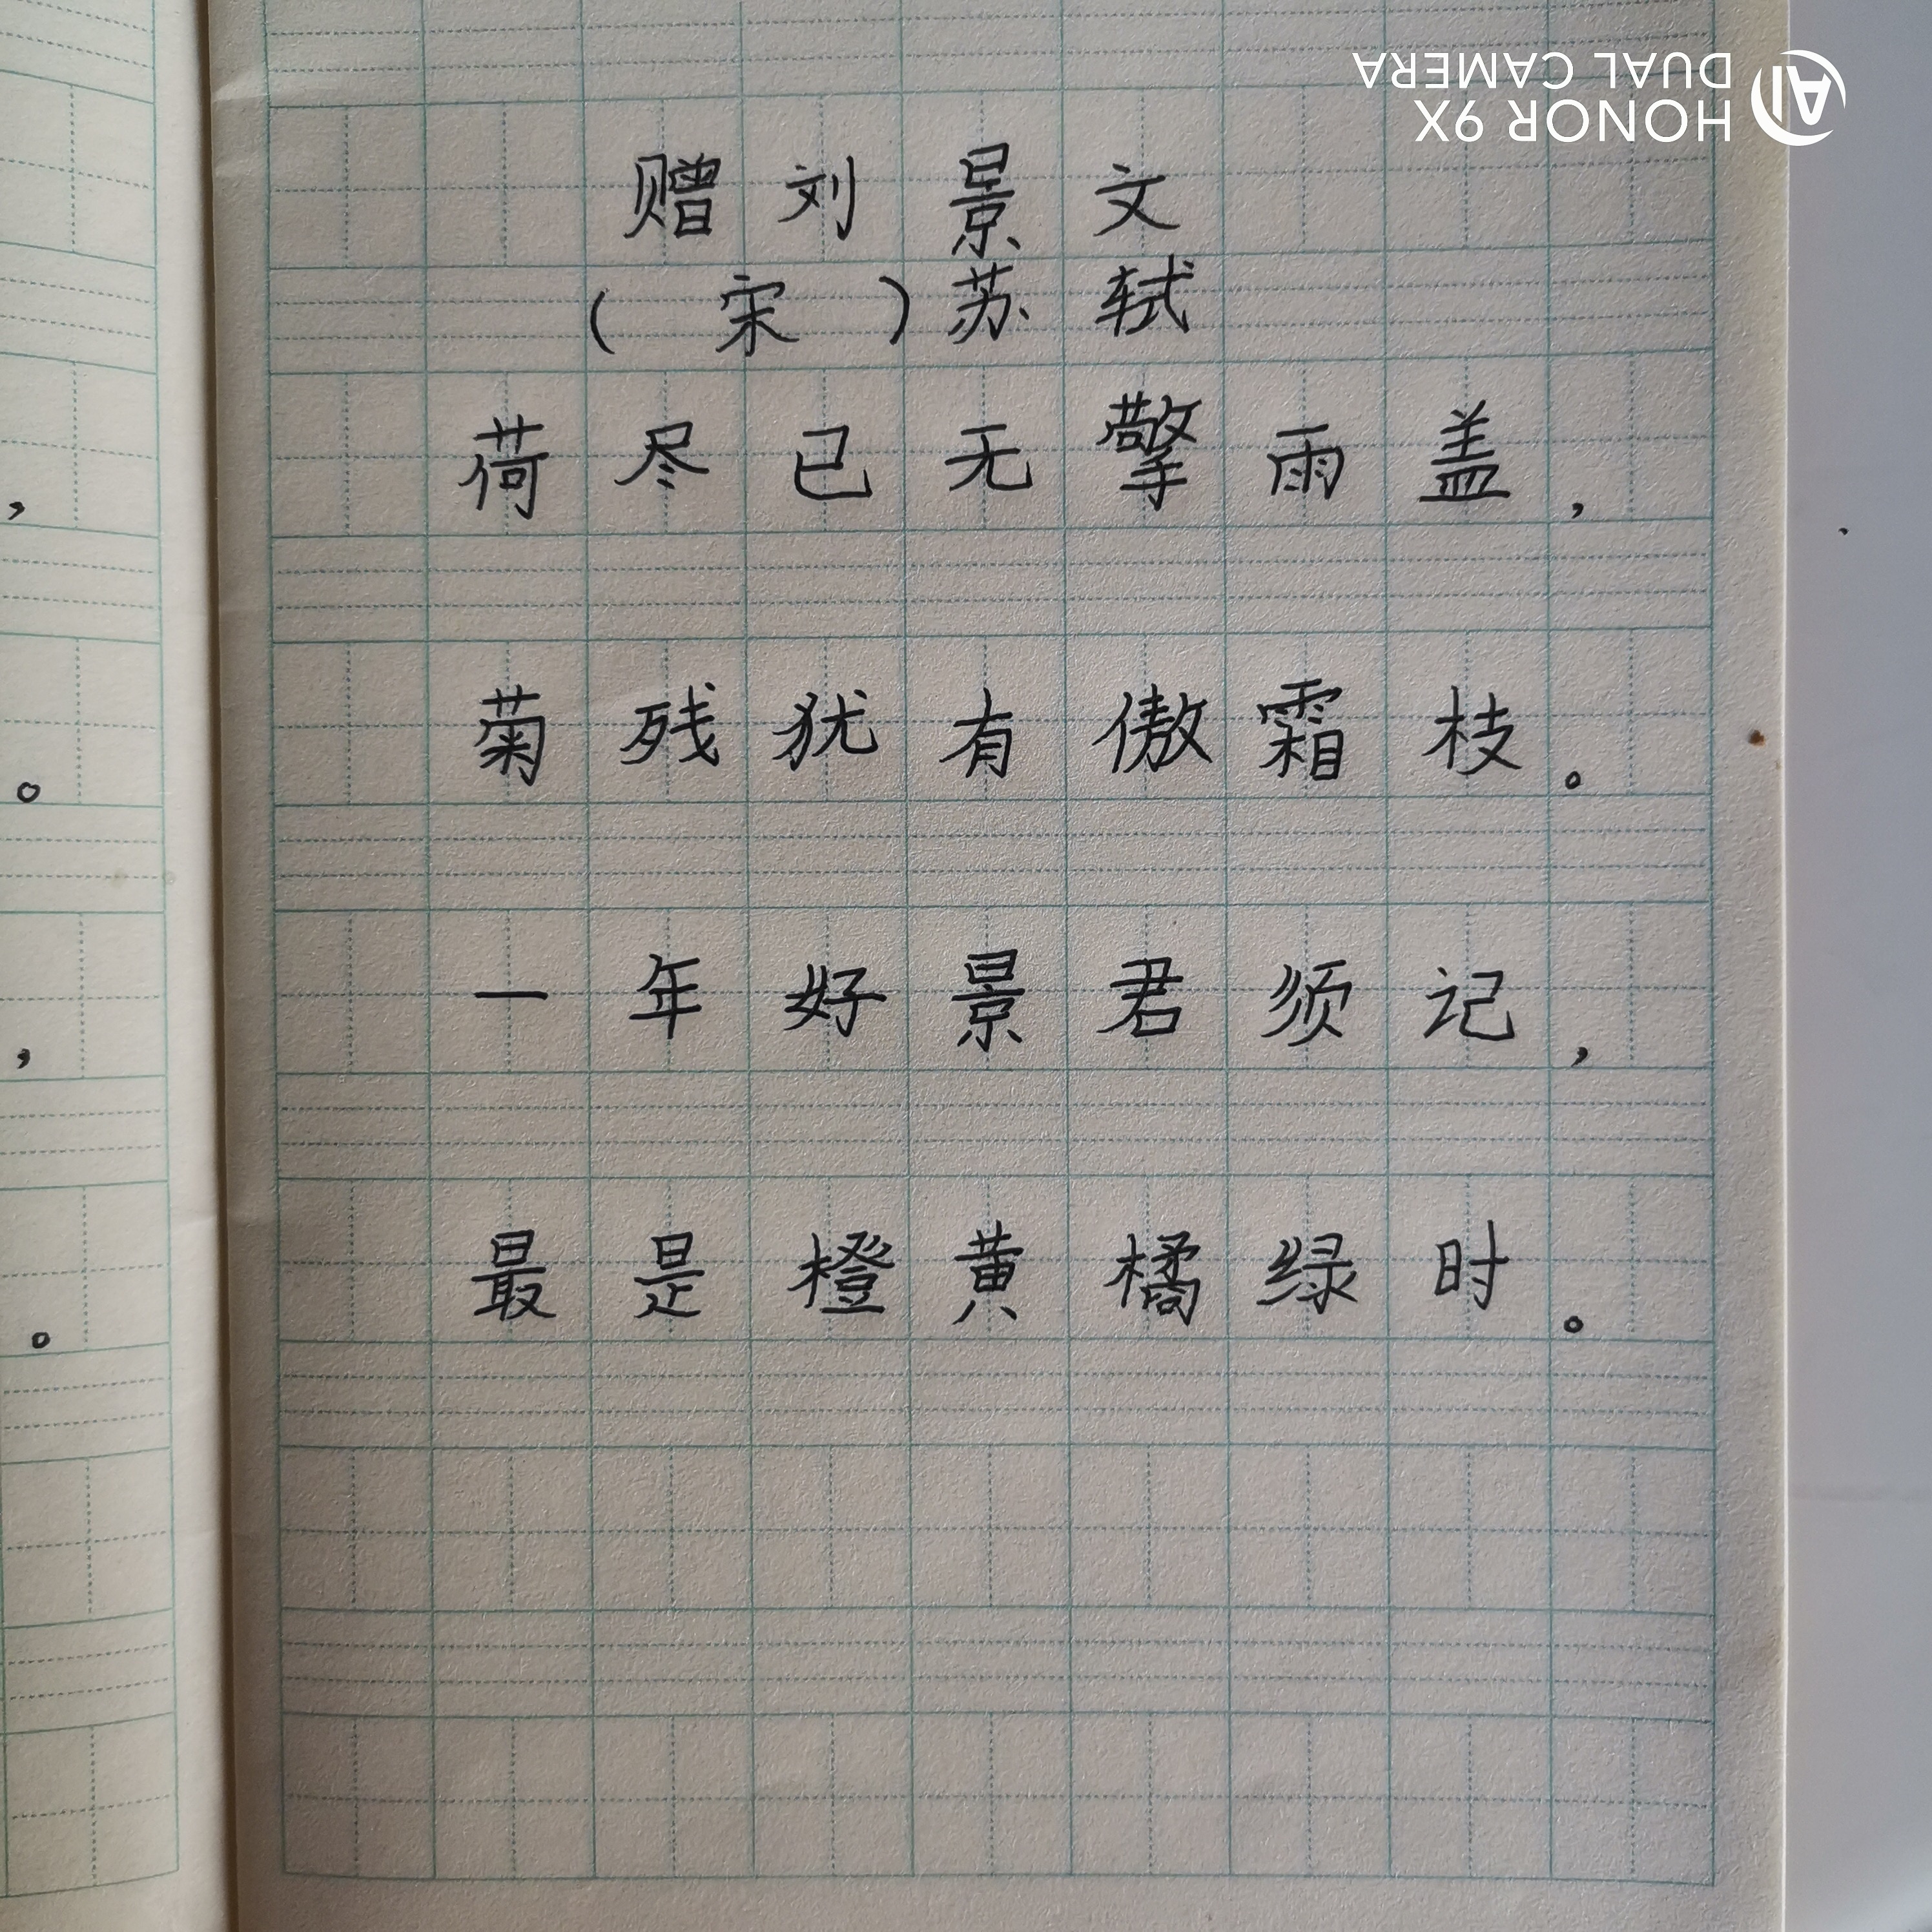 赠刘景文
(宋)苏轼
荷尽已无擎雨盖,
菊残犹有傲霜枝。
一年好景君须记,
最是橙黄橘绿时。
,
。
,
。
HONOR 9X
DUAL CAMERA
AI